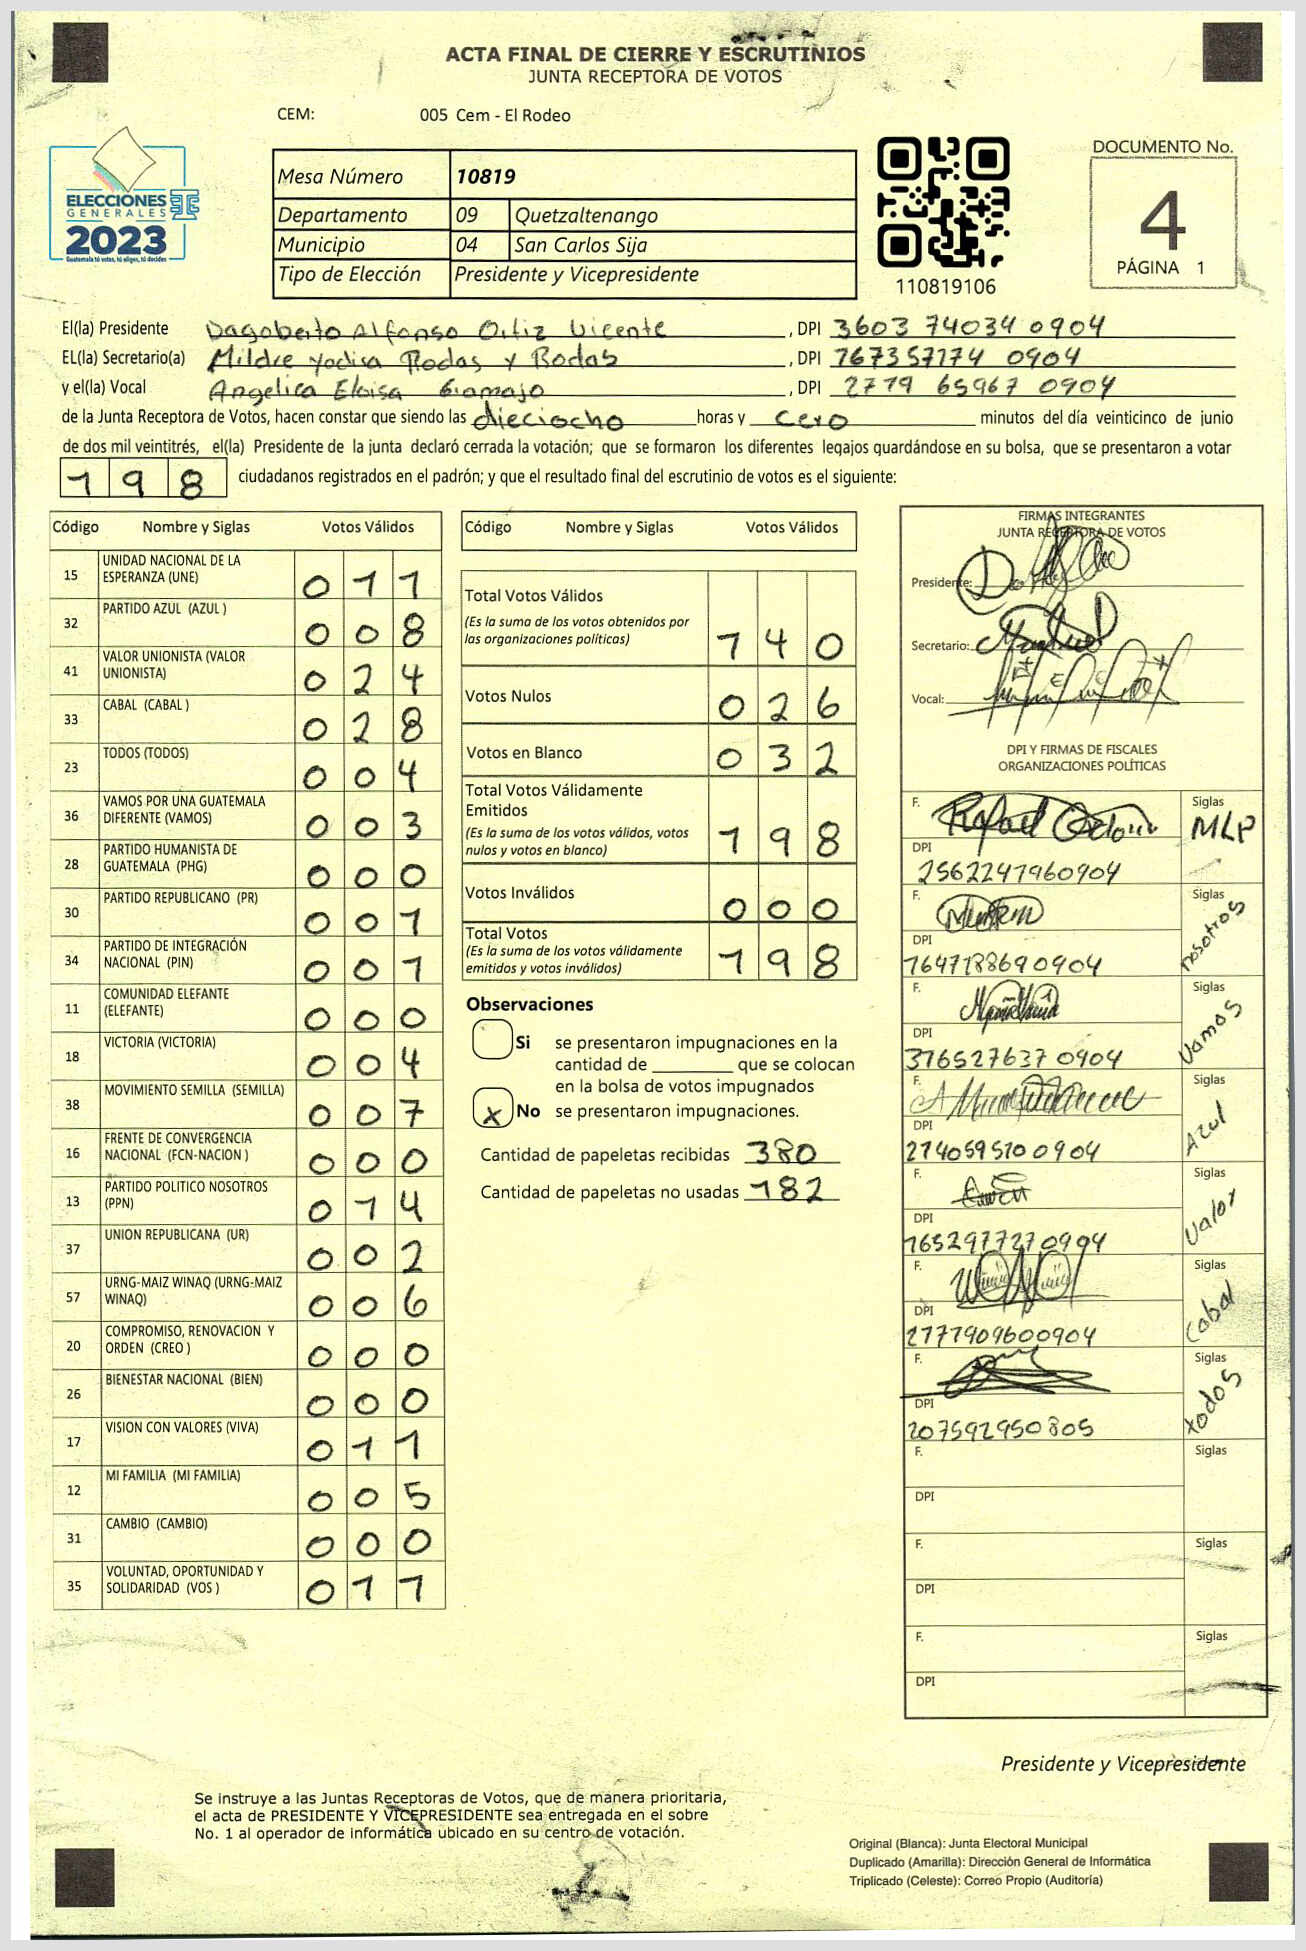 ACTA FINAL DE CIERRE Y ESCRUTINIOS
JUNTA RECEPTORA DE VOTOS
CEM: 005 Cem - El Rodeo
ELECCIONES
GENERALES
2023
Guatemala tú votas, tú eliges, tú decides
Mesa Número 10819
Departamento 09 Quetzaltenango
Municipio 04 San Carlos Sija
Tipo de Elección Presidente y Vicepresidente
110819106
DOCUMENTO No.
4
PÁGINA 1
El(la) Presidente Dagoberto Alfonso Ortiz Vicente, DPI 3603 74034 0904
EL(la) Secretario(a) Mildre Yodisa Rodas y Rodas, DPI 167357174 0904
y el(la) Vocal Angelica Eloisa, DPI 2779 65967 0904
de la Junta Receptora de Votos, hacen constar que siendo las dieciocho horas y cero minutos del día veinticinco de junio
de dos mil veintitrés, el(la) Presidente de la junta declaró cerrada la votación; que se formaron los diferentes legajos guardándose en su bolsa, que se presentaron a votar
198 ciudadanos registrados en el padrón; y que el resultado final del escrutinio de votos es el siguiente:
Código Nombre y Siglas Votos Válidos
15 UNIDAD NACIONAL DE LA
ESPERANZA (UNE) 011
32 PARTIDO AZUL (AZUL ) 008
41 VALOR UNIONISTA (VALOR
UNIONISTA) 024
33 CABAL (CABAL ) 028
23 TODOS (TODOS) 004
36 VAMOS POR UNA GUATEMALA
DIFERENTE (VAMOS) 003
28 PARTIDO HUMANISTA DE
GUATEMALA (PHG) 000
30 PARTIDO REPUBLICANO (PR) 001
34 PARTIDO DE INTEGRACIÓN
NACIONAL (PIN) 001
11 COMUNIDAD ELEFANTE
(ELEFANTE) 000
18 VICTORIA (VICTORIA) 004
38 MOVIMIENTO SEMILLA (SEMILLA) 007
16 FRENTE DE CONVERGENCIA
NACIONAL (FCN-NACION ) 000
13 PARTIDO POLITICO NOSOTROS
(PPN) 014
37 UNION REPUBLICANA (UR) 002
57 URNG-MAIZ WINAQ (URNG-MAIZ
WINAQ) 006
20 COMPROMISO, RENOVACION Y
ORDEN (CREO ) 000
26 BIENESTAR NACIONAL (BIEN) 000
17 VISION CON VALORES (VIVA) 011
12 MI FAMILIA (MI FAMILIA) 005
31 CAMBIO (CAMBIO) 000
35 VOLUNTAD, OPORTUNIDAD Y
SOLIDARIDAD (VOS ) 011
Código Nombre y Siglas Votos Válidos
Total Votos Válidos
(Es la suma de los votos obtenidos por
las organizaciones políticas) 140
Votos Nulos 026
Votos en Blanco 032
Total Votos Válidamente
Emitidos
(Es la suma de los votos válidos, votos
nulos y votos en blanco) 198
Votos Inválidos 000
Total Votos
(Es la suma de los votos válidamente
emitidos y votos inválidos) 198
Observaciones
Si se presentaron impugnaciones en la
cantidad de ________ que se colocan
en la bolsa de votos impugnados
x No se presentaron impugnaciones.
Cantidad de papeletas recibidas 380
Cantidad de papeletas no usadas 182
FIRMAS INTEGRANTES
JUNTA RECEPTORA DE VOTOS
Presidente:
Secretario:
Vocal:
DPI Y FIRMAS DE FISCALES
ORGANIZACIONES POLÍTICAS
F. Rafael Siglas MLP
DPI
2562247960904
F. Siglas nosotros
DPI
1647188690904
F. Siglas Vamos
DPI
376527637 0904
F. Siglas Azul
DPI
2740595100904
F. Siglas Valor
DPI
1652977270904
F. Siglas Cabal
DPI
2777909600904
F. Siglas todos
DPI
207592950805
F. Siglas
DPI
F. Siglas
DPI
F. Siglas
DPI
Presidente y Vicepresidente
Se instruye a las Juntas Receptoras de Votos, que de manera prioritaria,
el acta de PRESIDENTE Y VICEPRESIDENTE sea entregada en el sobre
No. 1 al operador de informática ubicado en su centro de votación.
Original (Blanca): Junta Electoral Municipal
Duplicado (Amarilla): Dirección General de Informática
Triplicado (Celeste): Correo Propio (Auditoría)